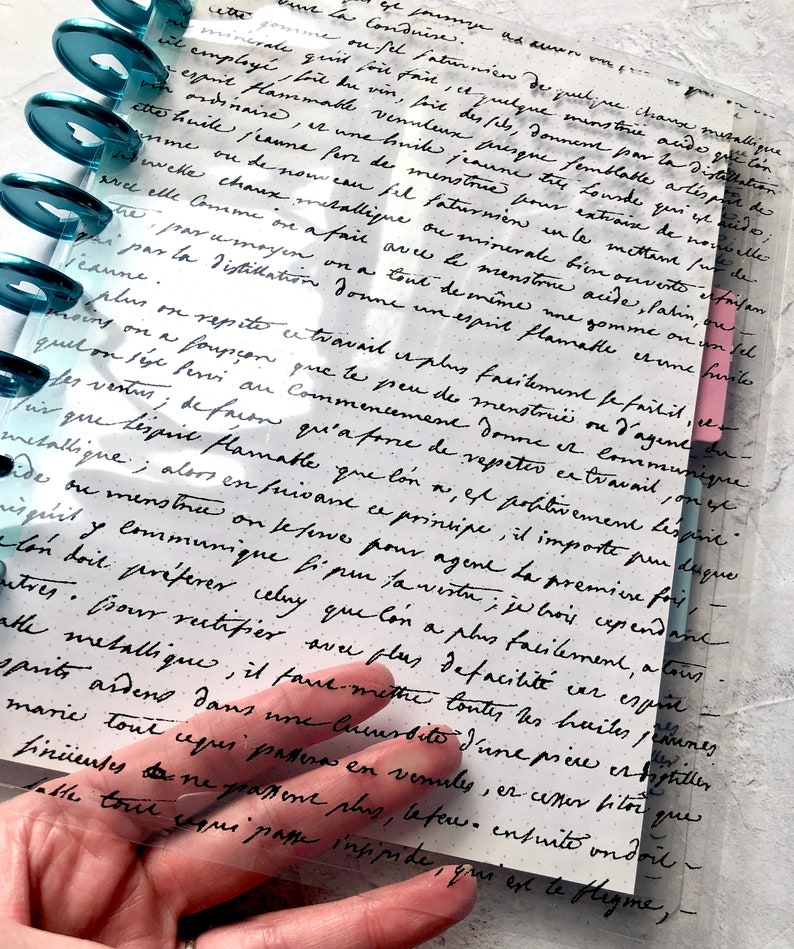 est journee
vent la conduire.
cette gomme ou sel saturnien de quelque chaux metallique
ou minerale qu'il soit fait, et quelque menstrüe acide que l'on
ait employé, soit du vin, soit des sels, donnent par la distillation
un esprit flammable venuleux presque semblable a l'esprit de
vin ordinaire, et une huile jeaune tres lourde qui est acide;
cette huile jeaune sert de menstrüe pour extraire de nouvelle
gomme ou de nouveau sel saturnien en le mettant sur de
nouvelle chaux metallique ou minerale bien ouverte et faisan
avec elle comme on a fait avec le menstrüe acide, Patin, ou
par ce moyen on a tout de même une gomme ou un sel
qui par la distillation donne un esprit flamable et une huile
jeaune.
plus on repete ce travail et plus facilement se fait il, et
moins on a soupçon que le peu de menstrüe ou d'agent du
quel on s'est servi au commencement donne et communique
ses vertus, de façon qu'a force de repeter ce travail, on est
sur que l'esprit flamable que l'on a, est positivement l'esprit
metallique; alors en suivant ce principe, il importe peu de que
acide ou menstrüe on se serve pour agent la premiere fois,
puisqu'il y communique si peu sa vertu, je crois cependant
que l'on doit préferer celuy que l'on a plus facilement, a tous
autres. pour rectifier avec plus de facilité cet esprit
metallique, il faut mettre toutes les huiles jeaunes
esprits ardens dans une cucurbite d'une piece et distiller
marie tout ce qui passera en venules, et cesser sitôt que
sinüeuses ne passent plus, le feu. ensuite on doit
tout ce qui passe insipide, qui est le flegme,